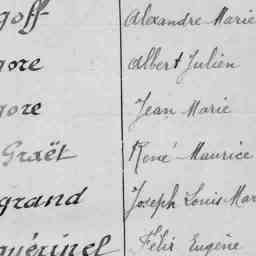 goff Alexandre Marie
gore Albert Julien
gore Jean Marie
Graët René Maurice
grand Joseph Louis Mar
uérinel Félix Eugène